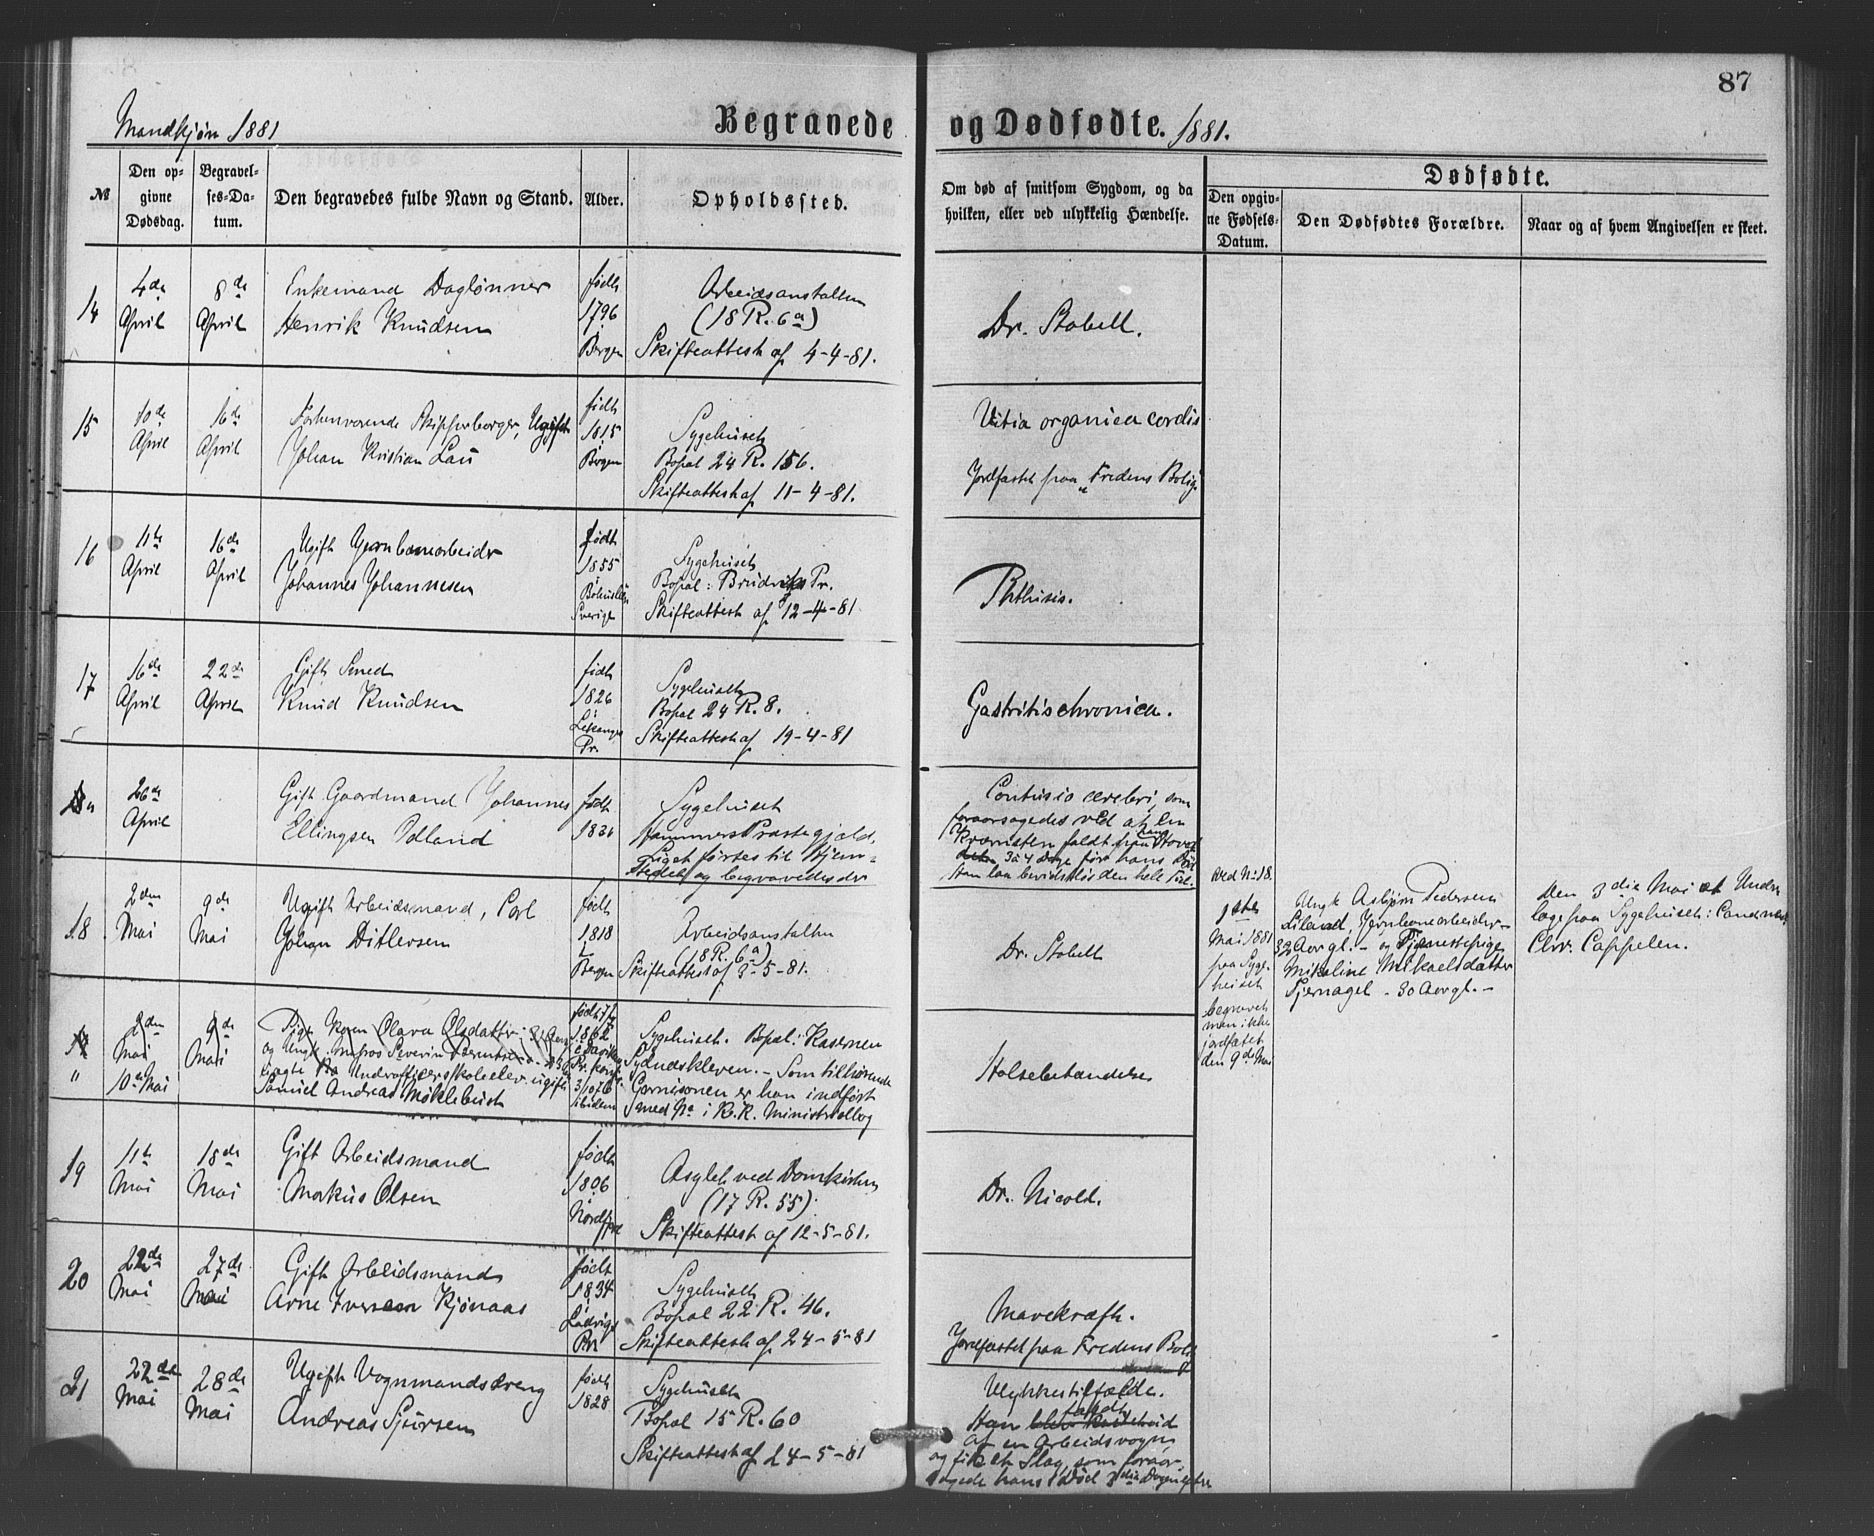 87
Mandkjøn 1881
Begravede og Dødfødte. 1881.
№
Den op-
givne
Dødsdag.
Begravel-
ses-Da-
tum.
Den begravedes fulde Navn og Stand.
Alder.
Opholdssted.
Om død af smitsom Sygdom, og da
hvilken, eller ved ulykkelig Hændelse.
Dødfødte.
Den opgiv-
ne Fødsels-
Datum.
Den Dødfødtes Forældre.
Naar og af hvem Angivelsen er skeet.
14
4de
April
8de
April
Enkemand Daglønner
Henrik Knudsen
født
1796
i
Bergen
Arbeidsanstalten
(18 R. 6a)
Skifteattest af 4-4-81.
Dr. Stabell.
15
10de
April
16de
April
Forhenværende Skipperborger, Ugift
Johan Kristian Lau
født
1815
i
Bergen
Sygehuset
Bopæl 24 R. 156.
Skifteattest af 11-4-81.
Vitia organica cordis
Jordfæstet paa "Fredens Bolig"
16
11te
April
16de
April
Ugift Jernbanearbeider
Johannes Johannesen
født
1855
Bohuslän
Sverige
Sygehuset
Bopæl: Brudviks Pr.
Skifteattest af 12-4-81
Phthisis.
17
16de
April
22de
April
Gift Smed
Knud Knudsen
født
1826
i
Lekanger
Pr.
Sygehuset
Bopæl 24 R. 8.
Skifteattest af 19-4-81
Gastritis chronica.
26de
April
Gift Gaardmand Johannes
Ellingsen Tolland
født
Sygehuset
Hammers Præstegjæld,
Liget førtes til Hjem-
stedet og begravedes der
Contusio cerebri, som
foraarsagedes ved at en
Kværnsten faldt paa hans Hoved
3 à 4 Dage før hans Død
Han laa bevidstløs den hele Tid.
18
2den
Mai
9de
Mai
Ugift Arbeidsmand, Carl
Johan Ditlefsen
født
1818
i
Bergen
Arbeidsanstalten
(18 R. 6a)
Skifteattest af 3-5-81.
Dr. Stabell
ved No 18.
1ste
Mai 1881
paa Syge-
huset
begravet
men ikke
jordfæstet
den 9de Mai
Ungk. Asbjørn Pedersen
Jernbanearbeider
32 Aar gl. - og Tjenestepige
Mikeline Mikaelsdatter
Tjernagel - 30 Aar gl. -
Den 3die Mai af Under
læge paa Sygehuset: Cand. med.
Chr. Cappelen.
2den
Mai
9de
Mai
"
10de Mai
Pige Karen Olava Olsdatter
og Ungk. Matros Severin
Underofficersskoleelev ugift
Samuel Andreas Møklebust
født
1862
ibidem
Sygehuset. Bopæl: Kasernen
Sydnæskleven. - Som tilhørende
Garnisonen er han indført
med No i K. R. Ministerialbog
Halsebetændelse
19
11te
Mai
18de
Mai
Gift Arbeidsmand
Markus Olsen
født
1806
i
Nordfjord
Asylet ved Domkirken
(17 R. 55).
Skifteattest af 12-5-81.
Dr. Nicold.
20
22de
Mai
27de
Mai
Gift Arbeidsmand
Arne Iversen Kjønaas
født
1834
i
Ladvigs
Pr.
Sygehuset
Bopæl 22 R. 46.
Skifteattest af 24-5-81
Mavekræft.
Jordfæstet paa Fredens Bolig
21
22de
Mai
28de
Mai
Ugift Vognmandsdreng
Andreas Sjursen
født
1828
Sygehuset
Bopæl 15 R. 60
Skifteattest af 24-5-81
Ulykkestilfælde.
Han faldt
af en Arbeidsvogn
og fik et Slag, som foraar-
sagede hans Død 3die Dagen efter